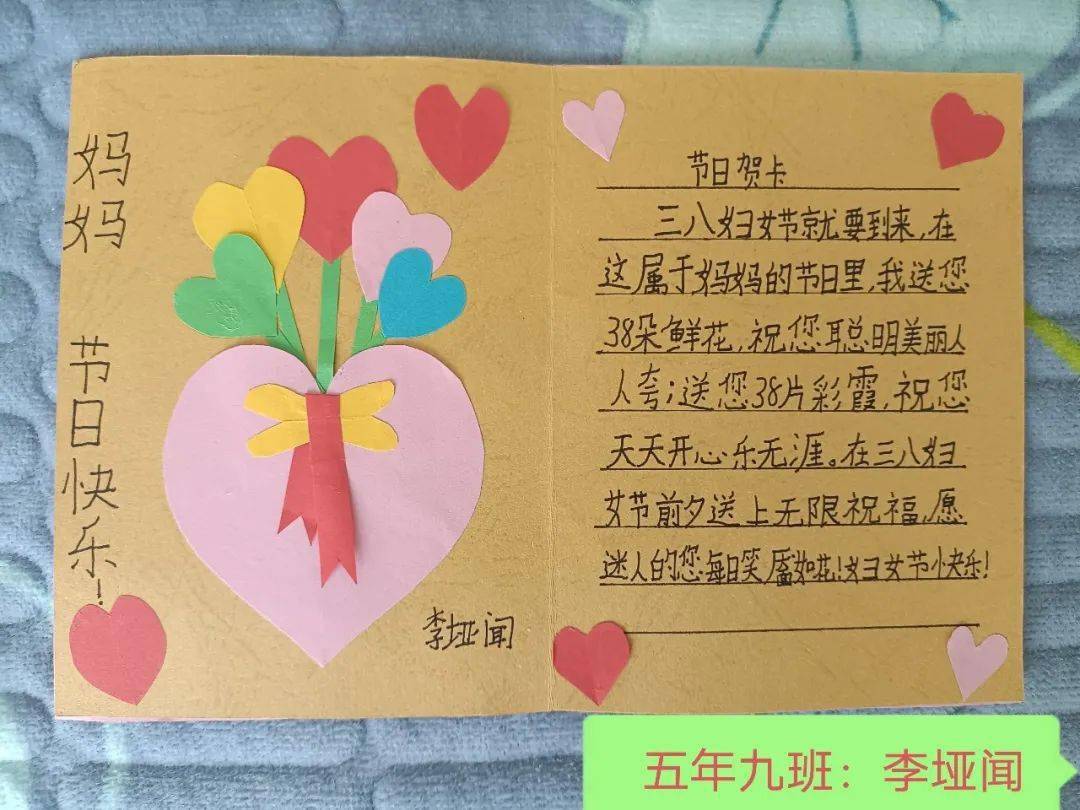 妈妈 节日快乐!
李垭闻
节日贺卡
三八妇女节就要到来,在
这属于妈妈的节日里,我送您
38朵鲜花,祝您聪明美丽人
人夸;送您38片彩霞,祝您
天天开心乐无涯。在三八妇
女节前夕送上无限祝福,愿
迷人的您每日笑靥如花!妇女节快乐!
五年九班:李垭闻